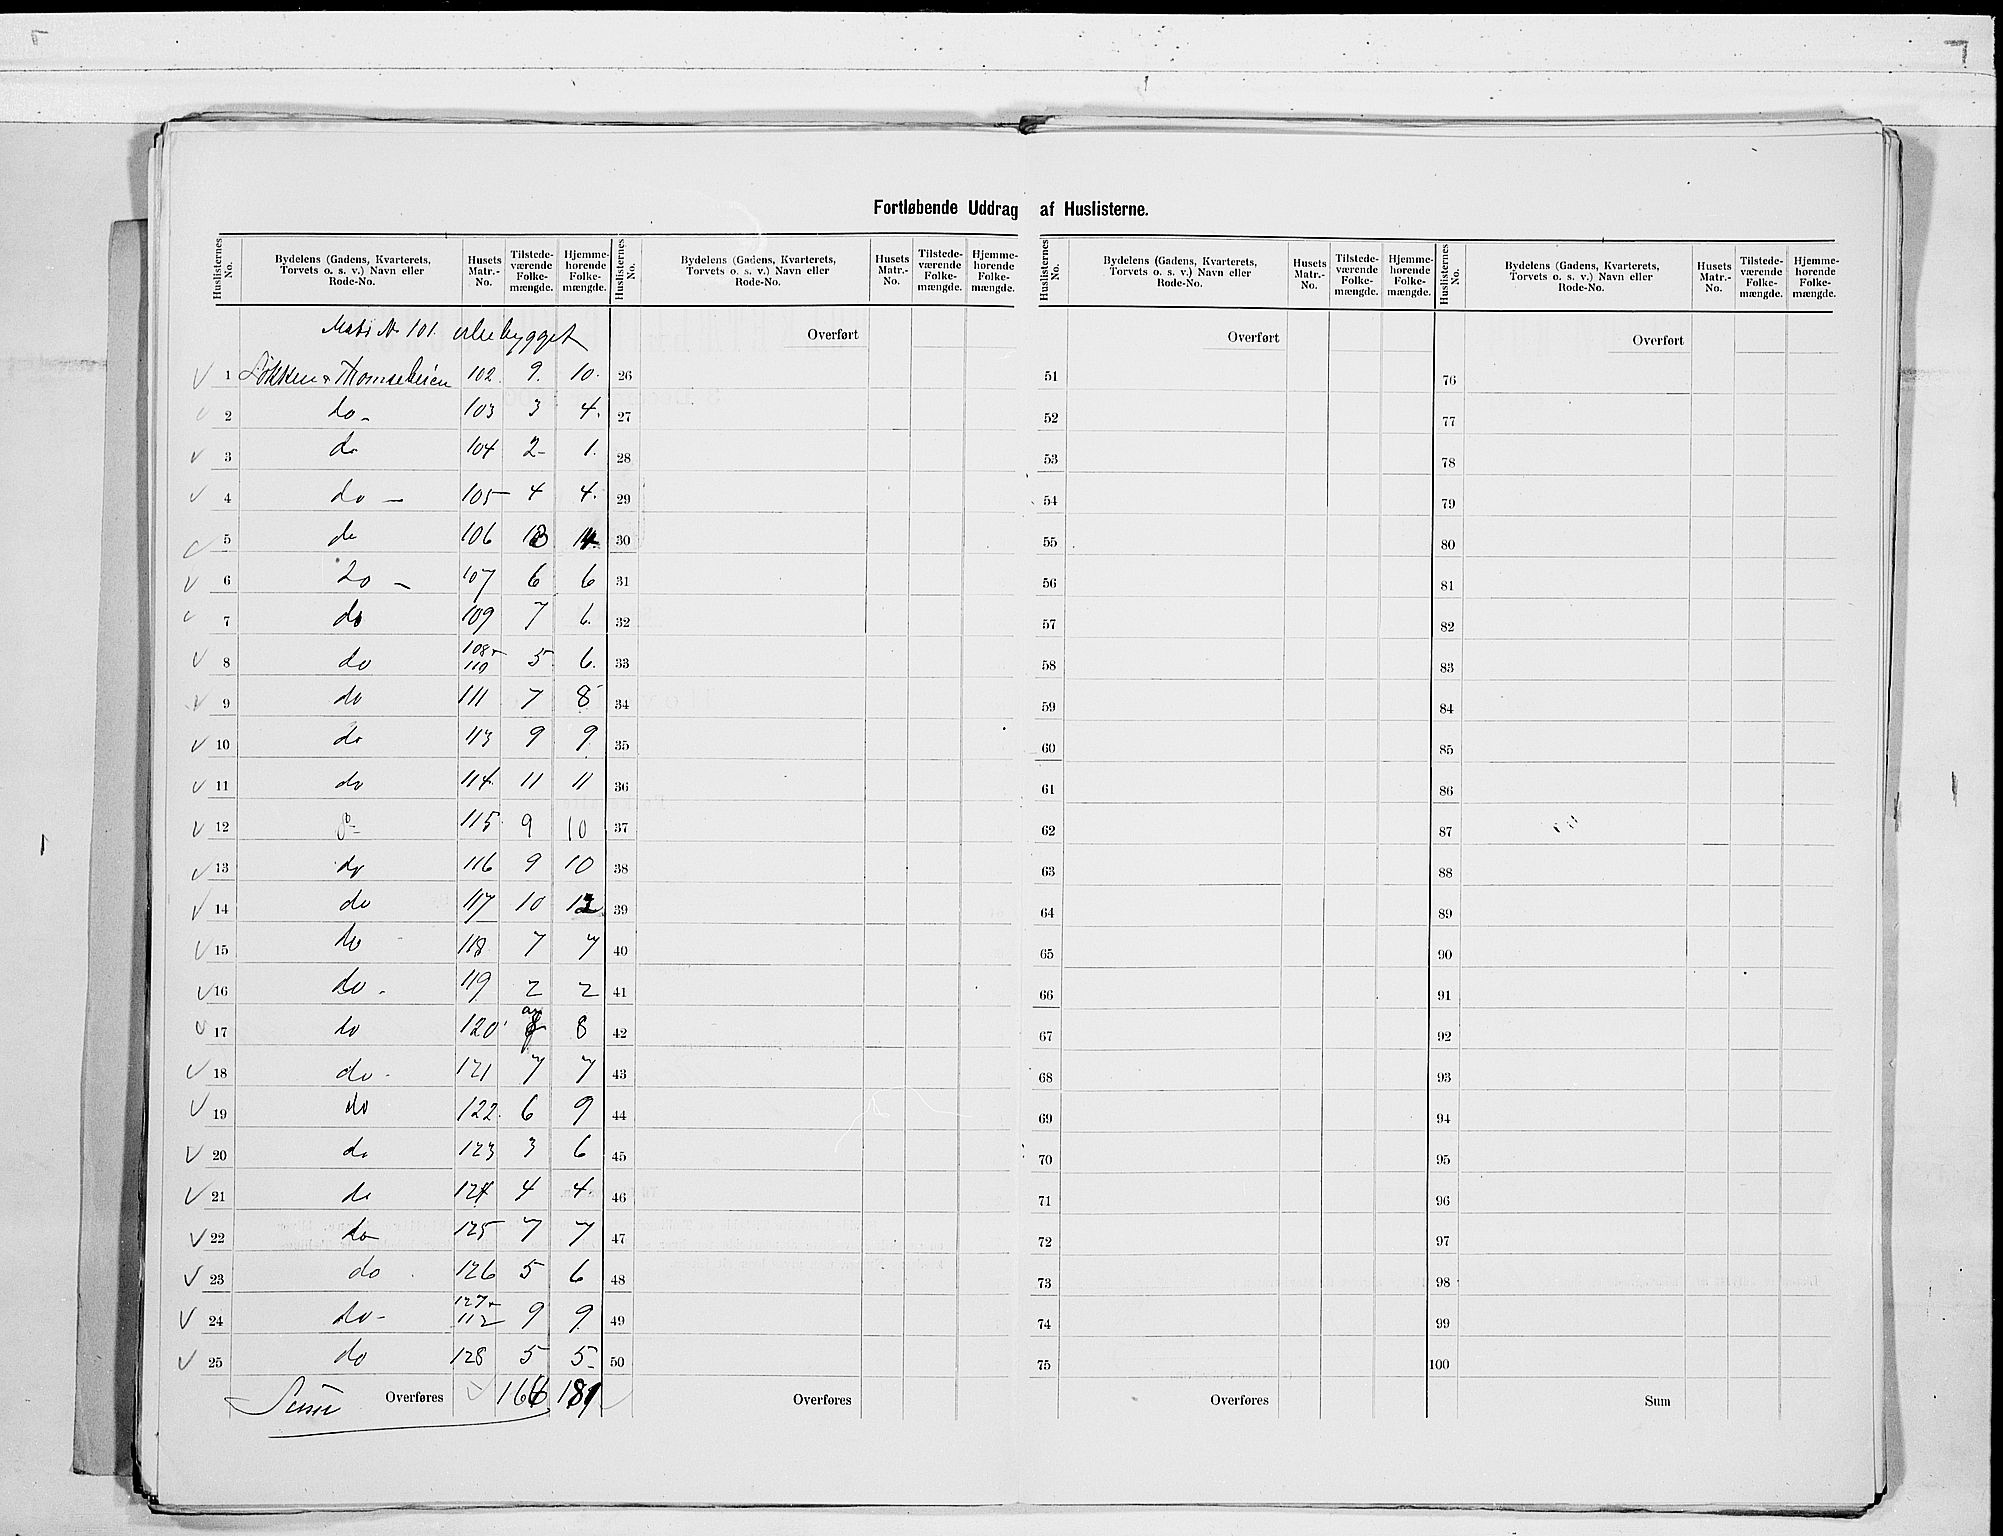 Fortløbende Uddrag af Huslisterne.
Huslisternes No. | Bydelens (Gadens, Kvarterets, Torvets o. s. v.) Navn eller Rode-No. | Husets Matr.-No. | Tilstedeværende Folkemængde. | Hjemmehørende Folkemængde. | Huslisternes No. | Bydelens (Gadens, Kvarterets, Torvets o. s. v.) Navn eller Rode-No. | Husets Matr.-No. | Tilstedeværende Folkemængde. | Hjemmehørende Folkemængde. | Huslisternes No. | Bydelens (Gadens, Kvarterets, Torvets o. s. v.) Navn eller Rode-No. | Husets Matr.-No. | Tilstedeværende Folkemængde. | Hjemmehørende Folkemængde. | Huslisternes No. | Bydelens (Gadens, Kvarterets, Torvets o. s. v.) Navn eller Rode-No. | Husets Matr.-No. | Tilstedeværende Folkemængde. | Hjemmehørende Folkemængde.
Matr No 101. ubebygget | Overført | Overført | Overført
1 Løkken & 102. 9. 10. 26 51 76
2 do - 103 3 4. 27 52 77
3 do 104 2- 1. 28 53 78
4 do - 105 4 4. 29 54 79
5 do 106 30 55 80
6 do - 107 6 6 31 56 81
7 do 109 7 6. 32 57 82
8 do 108+110 5 6. 33 58 83
9 do 111 7 8 34 59 84
10 do 113 9 9 35 60 85
11 do 114. 11 11 36 61 86
12 do 115. 9 10 37 62 87
13 do 116 9 10 38 63 88
14 do 117 10 12 39 64 89
15 do 118 7 7 40 65 90
16 do - 119 2 2 41 66 91
17 do 120 8 42 67 92
18 do - 121 7 7 43 68 93
19 do 122. 6 9 44 69 94
20 do 123 3 6 45 70 95
21 do 124 4 4 46 71 96
22 do 125 7 7 47 72 97
23 do 126 5 6 48 73 98
24 do - 127+112 9 9 49 74 99
25 do 128 5 5- 50 75 100
Sum Overføres 166 181 Overføres Overføres Sum